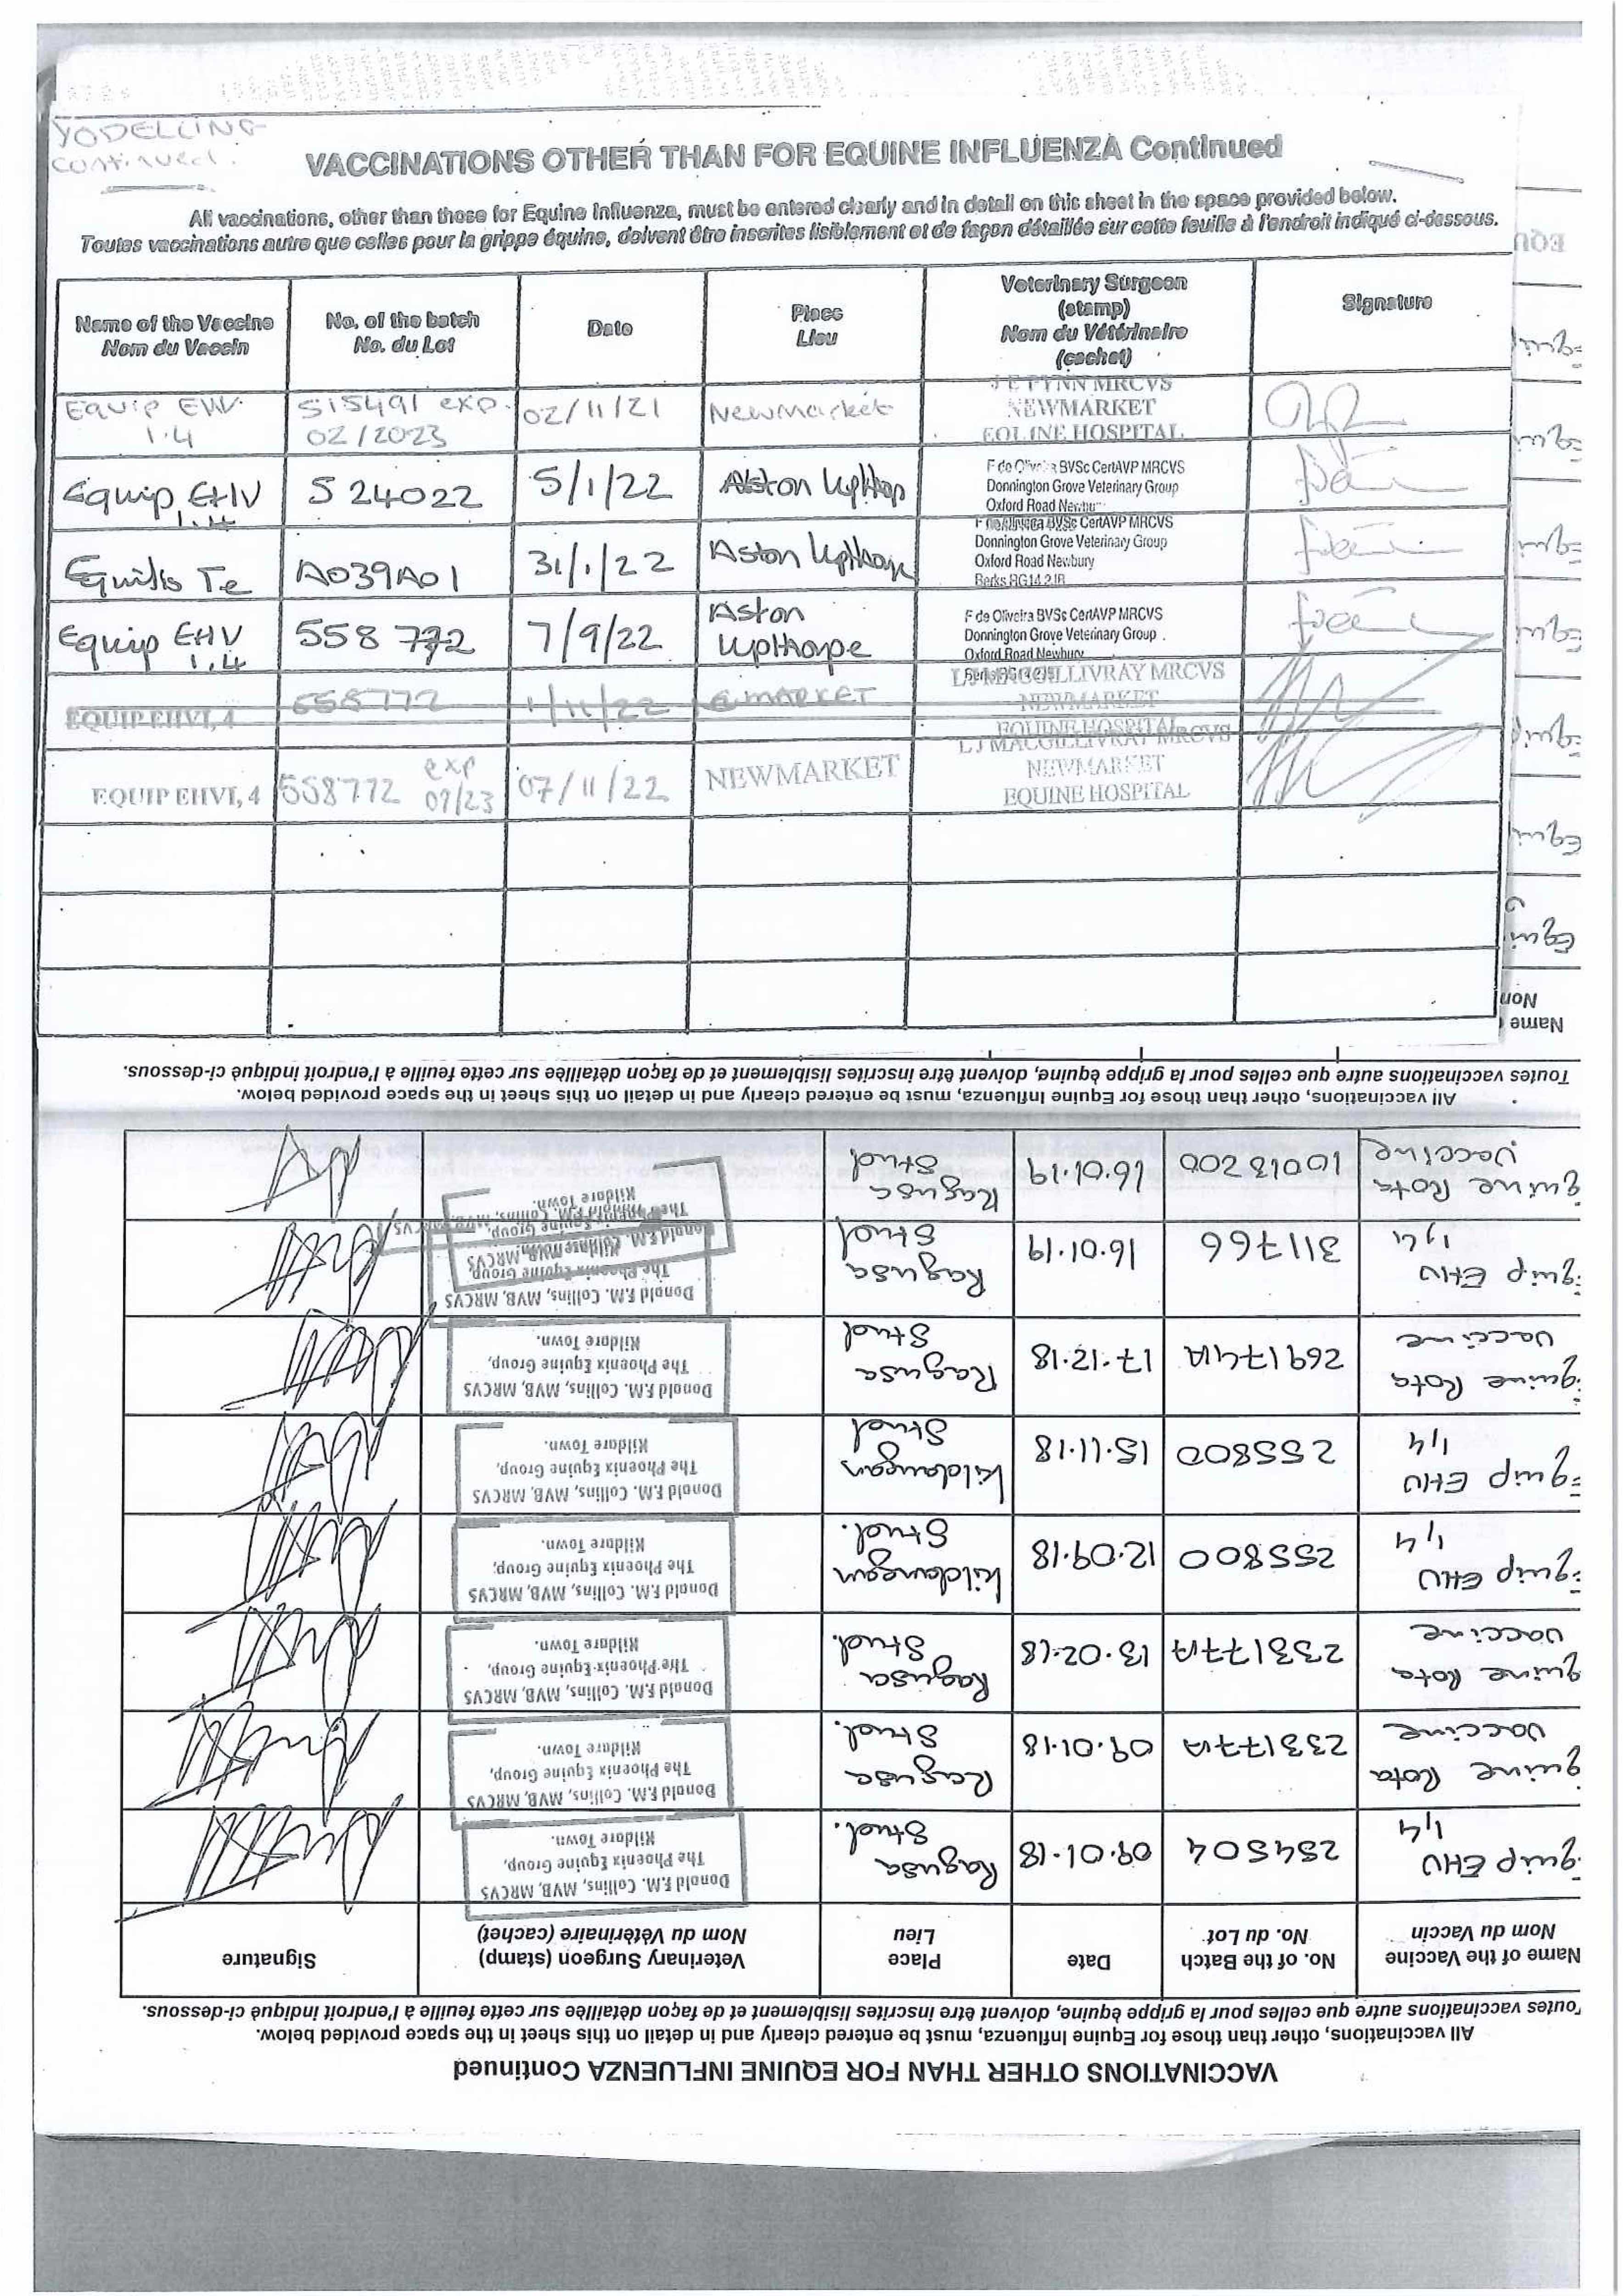 YODELLING
continued.
VACCINATIONS OTHER THAN FOR EQUINE INFLUENZA Continued
All vaccinations, other than those for Equine Influenza, must be entered clearly and in detail on this sheet in the space provided below.
Toutes vaccinations autre que celles pour la grippe équine, doivent être inscrites lisiblement et de façon détaillée sur cette feuille à l'endroit indiqué ci-dessous.
Name of the Vaccine
Nom du Vaccin
No. of the batch
No. du Lot
Date
Place
Lieu
Veterinary Surgeon
(stamp)
Nom du Vétérinaire
(cachet)
Signature
Equip EHV
1.4
515491 exp.
02/2023
02/11/21
Newmarket
J E PYNN MRCVS
NEWMARKET
EQUINE HOSPITAL
Equip EHV
1.4
524022
5/1/22
Aston Upthorp
F de Oliveira BVSc CertAVP MRCVS
Donnington Grove Veterinary Group
Oxford Road Newbury
Equilis Te
A039A01
31/1/22
Aston Upthorpe
F de Oliveira BVSc CertAVP MRCVS
Donnington Grove Veterinary Group
Oxford Road Newbury
Berks RG14 2JB
Equip EHV
1.4
558772
7/9/22
Aston
Upthorpe
F de Oliveira BVSc CertAVP MRCVS
Donnington Grove Veterinary Group
Oxford Road Newbury
EQUIP EHV1, 4
558772
1/11/22
L J MACGILLIVRAY MRCVS
NEWMARKET
EQUINE HOSPITAL
EQUIP EHV1, 4
558772 exp
09/23
07/11/22
NEWMARKET
L J MACGILLIVRAY MRCVS
NEWMARKET
EQUINE HOSPITAL
VACCINATIONS OTHER THAN FOR EQUINE INFLUENZA Continued
All vaccinations, other than those for Equine Influenza, must be entered clearly and in detail on this sheet in the space provided below.
Toutes vaccinations autre que celles pour la grippe équine, doivent être inscrites lisiblement et de façon détaillée sur cette feuille à l'endroit indiqué ci-dessous.
Name of the Vaccine
Nom du Vaccin
No. of the Batch
No. du Lot
Date
Place
Lieu
Veterinary Surgeon (stamp)
Nom du Vétérinaire (cachet)
Signature
quip EHV
1,4
254504
09.01.18
Ragusa
Stud.
Donald F.M. Collins, MVB, MRCVS
The Phoenix Equine Group,
Kildare Town.
quine Rota
Vaccine
233177A
09.01.18
Ragusa
Stud.
Donald F.M. Collins, MVB, MRCVS
The Phoenix Equine Group,
Kildare Town.
quine Rota
Vaccine
233177A
13.02.18
Ragusa
Stud.
Donald F.M. Collins, MVB, MRCVS
The Phoenix Equine Group,
Kildare Town.
quip EHV
1,4
255800
12.09.18
Kildangan
Stud.
Donald F.M. Collins, MVB, MRCVS
The Phoenix Equine Group,
Kildare Town.
quip EHV
1,4
255800
15.11.18
Kildangan
Stud
Donald F.M. Collins, MVB, MRCVS
The Phoenix Equine Group,
Kildare Town.
quine Rota
Vaccine
269174A
17.12.18
Ragusa
Stud
Donald F.M. Collins, MVB, MRCVS
The Phoenix Equine Group,
Kildare Town.
quip EHV
1,4
311766
16.01.19
Ragusa
Stud
Donald F.M. Collins, MVB, MRCVS
The Phoenix Equine Group,
Kildare Town.
quine Rota
Vaccine
16.01.19
Ragusa
Stud
Kildare Town.
All vaccinations, other than those for Equine Influenza, must be entered clearly and in detail on this sheet in the space provided below.
Toutes vaccinations autre que celles pour la grippe équine, doivent être inscrites lisiblement et de façon détaillée sur cette feuille à l'endroit indiqué ci-dessous.
Name
Nom
Equi
Equi
EQU